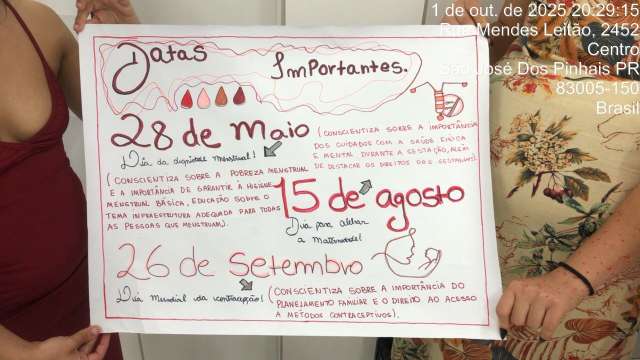 1 de out. de 2025 20:29:15
Rua Mendes Leitão, 2452
Centro
São José Dos Pinhais PR
83005-150
Brasil
Datas Importantes.
28 de Maio
Dia da dignidade Menstrual!
(CONSCIENTIZA SOBRE A POBREZA MENSTRUAL
E A IMPORTÂNCIA DE GARANTIR A HIGIENE
MENSTRUAL BÁSICA, EDUCAÇÃO SOBRE O
TEMA INFRAESTRUTURA ADEQUADA PARA TODAS
AS PESSOAS QUE MENSTRUAM).
(CONSCIENTIZA SOBRE A IMPORTÂNCIA
DOS CUIDADOS COM A SAÚDE FÍSICA
E MENTAL DURANTE A GESTAÇÃO, ALÉM
DE DESTACAR OS DIREITOS DAS GESTANTES).
15 de agosto
Dia para
a Maternidade!
26 de Setembro
Dia Mundial da contracepção!
(CONSCIENTIZA SOBRE A IMPORTÂNCIA DO
PLANEJAMENTO FAMILIAR E O DIREITO AO ACESSO
A MÉTODOS CONTRACEPTIVOS).